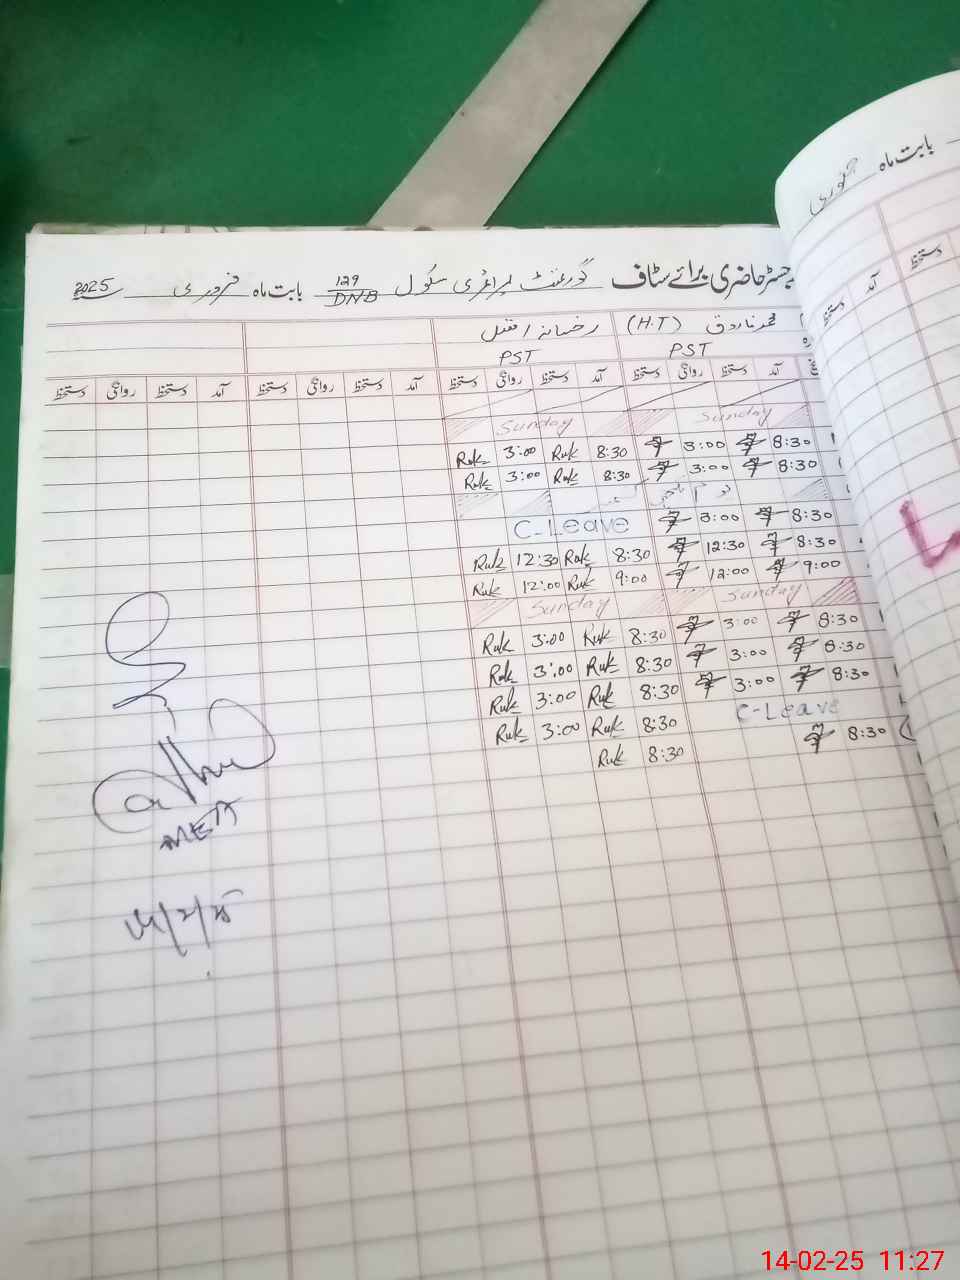 بابت ماہ جنوری
رجسٹر حاضری برائے سٹاف گورنمنٹ پرائمری سکول 129/DNB بابت ماہ فروری 2025
محمد فاروق (H.T) رخسانہ افضل
PST PST
آمد دستخظ روانگی دستخظ آمد دستخظ روانگی دستخظ آمد دستخظ روانگی دستخظ آمد دستخظ روانگی دستخظ
Sunday Sunday
8:30 3:00 8:30 Ruk 3:00 Ruk
8:30 3:00 8:30 Ruk 3:00 Ruk
8:30 3:00 C-Leave
8:30 12:30 8:30 Ruk 12:30 Ruk
9:00 12:00 9:00 Ruk 12:00 Ruk
Sunday Sunday
8:30 3:00 8:30 Ruk 3:00 Ruk
8:30 3:00 8:30 Ruk 3:00 Ruk
8:30 3:00 8:30 Ruk 3:00 Ruk
C-Leave 8:30 Ruk 3:00 Ruk
8:30 8:30 Ruk
MEA
14/2/25
14-02-25 11:27